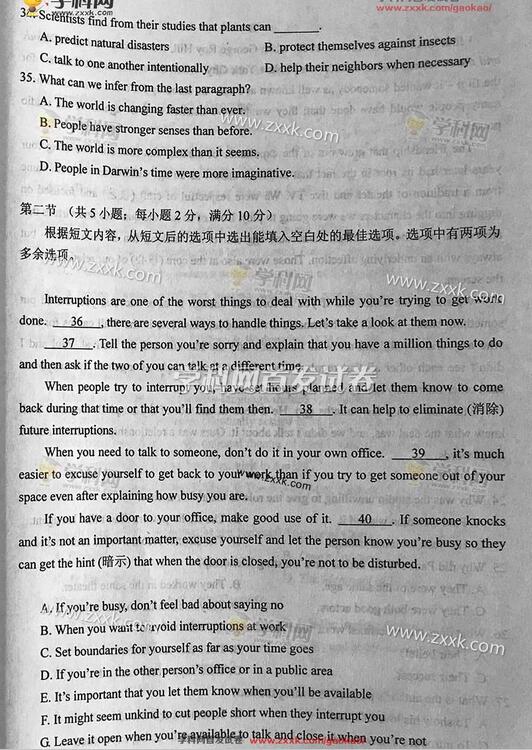 34. Scientists find from their studies that plants can ______.
A. predict natural disasters
B. protect themselves against insects
C. talk to one another intentionally
D. help their neighbors when necessary
35. What can we infer from the last paragraph?
A. The world is changing faster than ever.
B. People have stronger senses than before.
C. The world is more complex than it seems.
D. People in Darwin's time were more imaginative.
第二节 (共5小题; 每小题2分, 满分10分)
根据短文内容, 从短文后的选项中选出能填入空白处的最佳选项。选项中有两项为
多余选项。
Interruptions are one of the worst things to deal with while you're trying to get work
done. 36 , there are several ways to handle things. Let's take a look at them now.
37 . Tell the person you're sorry and explain that you have a million things to do
and then ask if the two of you can talk at a different time.
When people try to interrupt you, have set hours planned and let them know to come
back during that time or that you'll find them then. 38 . It can help to eliminate (消除)
future interruptions.
When you need to talk to someone, don't do it in your own office. 39 , it's much
easier to excuse yourself to get back to your work than if you try to get someone out of your
space even after explaining how busy you are.
If you have a door to your office, make good use of it. 40 . If someone knocks
and it's not an important matter, excuse yourself and let the person know you're busy so they
can get the hint (暗示) that when the door is closed, you're not to be disturbed.
A. If you're busy, don't feel bad about saying no
B. When you want to avoid interruptions at work
C. Set boundaries for yourself as far as your time goes
D. If you're in the other person's office or in a public area
E. It's important that you let them know when you'll be available
F. It might seem unkind to cut people short when they interrupt you
G. Leave it open when you're available to talk and close it when you're not
学科网
www.zxxk.com/gaokao/
www.zxxk.com
学科网首发试卷